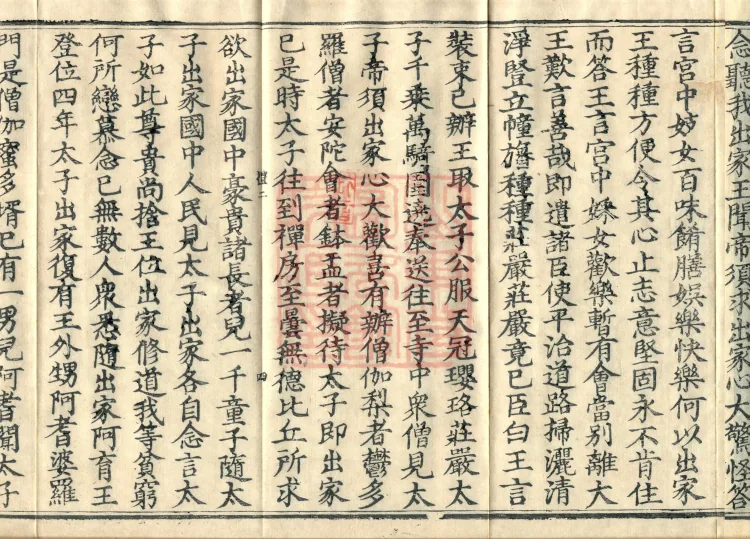 念聽我出家王聞帝須求出家心大驚怪答
言宮中妓女百味餚膳娛樂快樂何以出家
王種種方便令其心止志意堅固永不肯住
而答王言宮中婇女歡樂暫有會當別離大
王歎言善哉即遣諸臣使平治道路掃灑清
淨豎立幢旛種種莊嚴莊嚴竟已臣白王言
裝束已辦王取太子公服天冠瓔珞莊嚴太
子千乘萬騎圍遶奉送往至寺中眾僧見太
子帝須出家心大歡喜有辦僧伽梨者鬱多
羅僧者安陀會者鉢盂者擬待太子即出家
已是時太子往到禪房至曇無德比丘所求
欲出家國中豪貴諸長者兒一千童子隨太
子出家國中人民見太子出家各自念言太
子如此尊貴尚捨王位出家修道我等貧窮
何所戀慕念已無數人眾悉隨出家阿育王
登位四年太子出家復有王外甥阿嗜婆羅
門是僧伽蜜多壻已有一男兒阿嗜聞太子